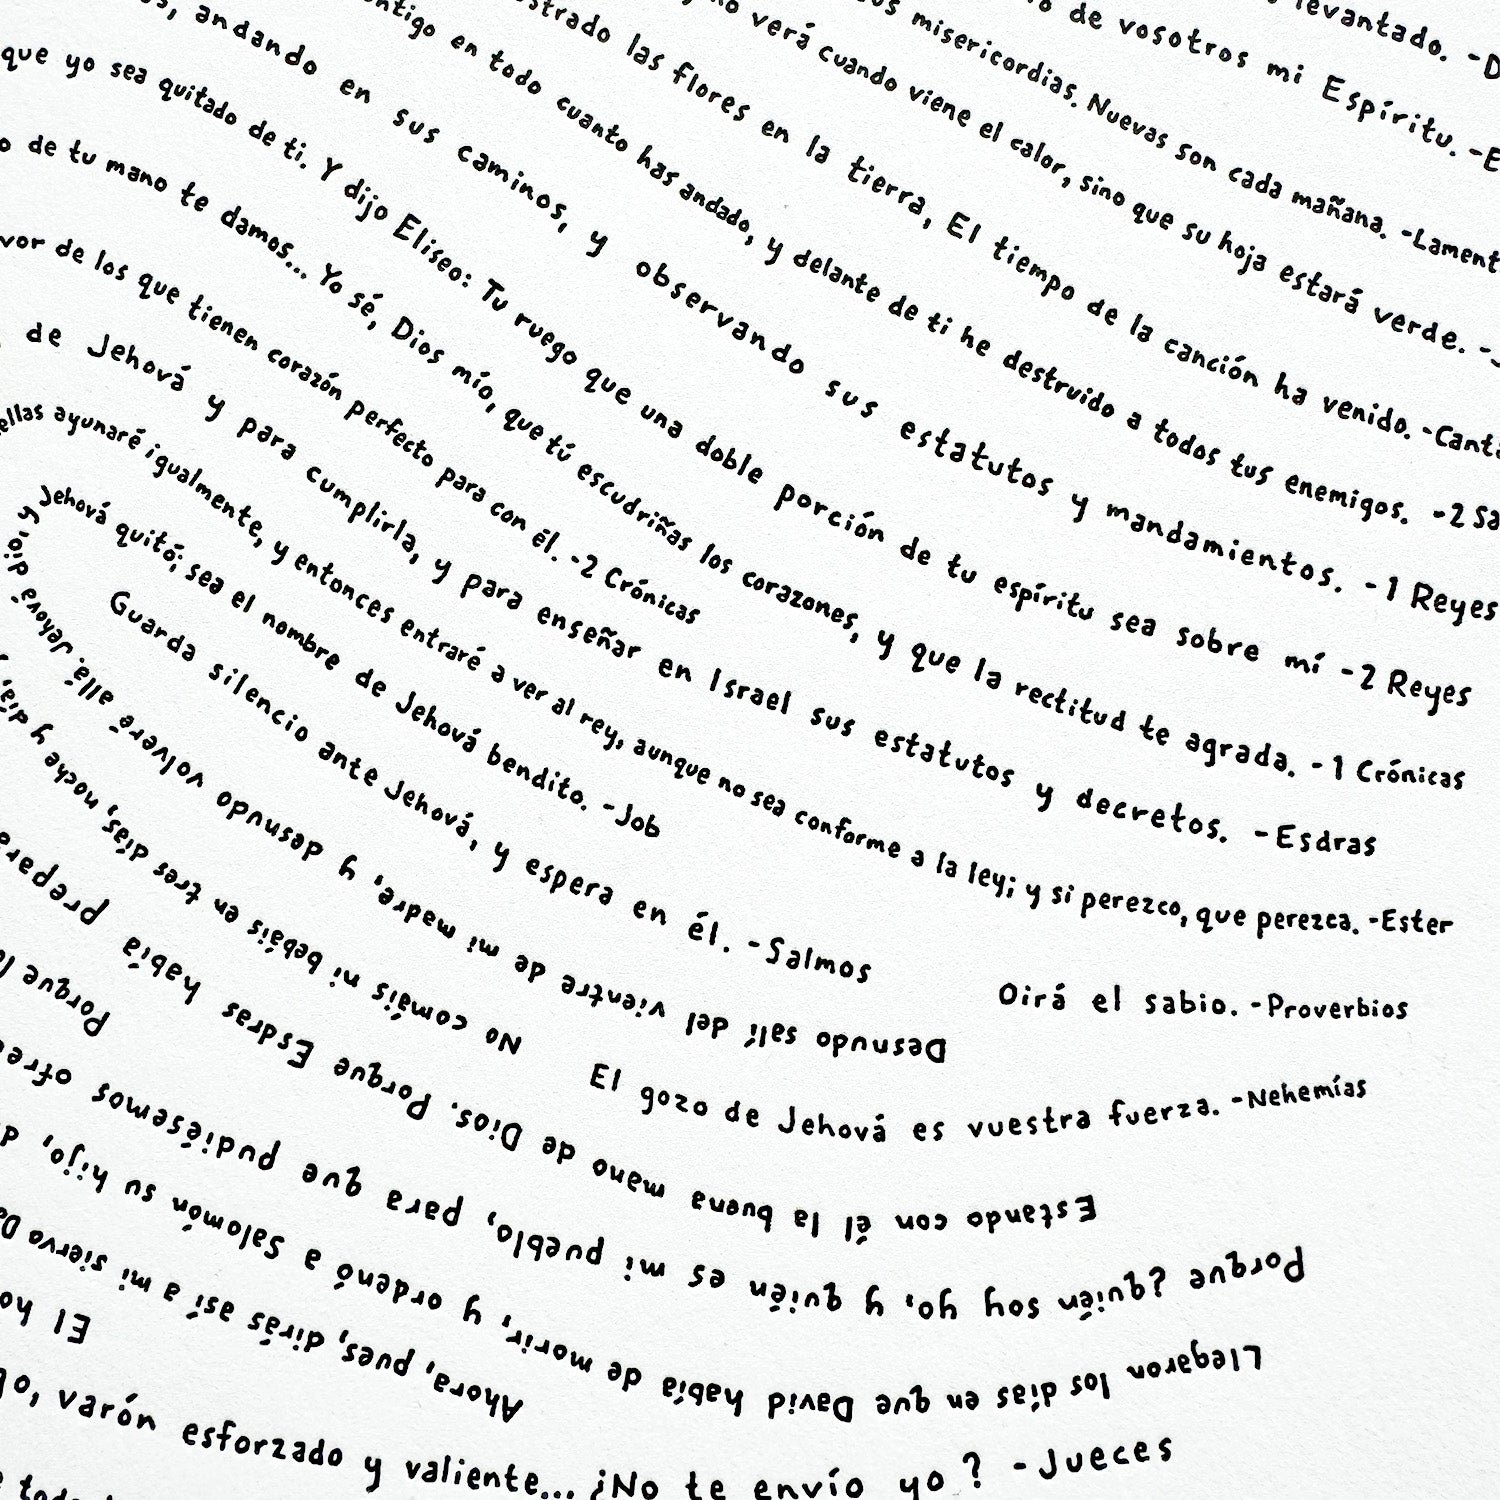 levantado. -D
de vosotros mi Espíritu. -E
misericordias. Nuevas son cada mañana. -Lament
verá cuando viene el calor, sino que su hoja estará verde.
strado las flores en la tierra, El tiempo de la canción ha venido. -Canta
ntigo en todo cuanto has andado, y delante de ti he destruido a todos tus enemigos. -2 Sa
andando en sus caminos, y observando sus estatutos y mandamientos. -1 Reyes
que yo sea quitado de ti. Y dijo Eliseo: Tu ruego que una doble porción de tu espíritu sea sobre mí -2 Reyes
de tu mano te damos... Yo sé, Dios mío, que tú escudriñas los corazones, y que la rectitud te agrada. -1 Crónicas
vor de los que tienen corazón perfecto para con él. -2 Crónicas
de Jehová y para cumplirla, y para enseñar en Israel sus estatutos y decretos. -Esdras
ellas ayunaré igualmente, y entonces entraré a ver al rey, aunque no sea conforme a la ley; y si perezco, que perezca. -Ester
Desnudo salí del vientre de mi madre, y desnudo volveré allá. Jehová dio, y Jehová quitó; sea el nombre de Jehová bendito. -Job
Guarda silencio ante Jehová, y espera en él. -Salmos
Oirá el sabio. -Proverbios
No comáis ni bebáis en tres días, noche y día;
El gozo de Jehová es vuestra fuerza. -Nehemías
Estando con él la buena mano de Dios. Porque Esdras había prepara
Porque
Porque ¿quién soy yo, y quién es mi pueblo, para que pudiésemos ofrec
Llegaron los días en que David había de morir, y ordenó a Salomón su hijo, d
Ahora, pues, dirás así a mi siervo Da
El ho
varón esforzado y valiente... ¿No te envío yo? -Jueces